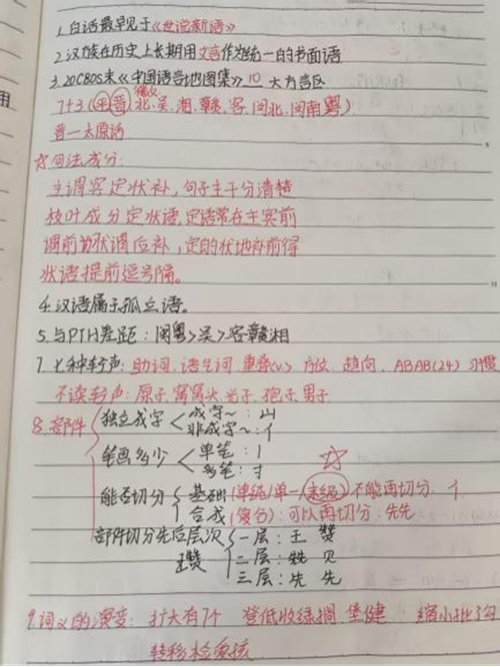 1.白话最早见于《世说新语》
2.汉族在历史上长期用文言作为统一的书面语
3.20C80S末《中国语言地图集》10大方言区
7+3(平晋徽 北、吴、湘、赣、客、闽北、闽南粤)
晋—太原话
☆句法成分:
主谓宾定状补,句子主干分清楚
枝叶成分定状语,定语常在主宾前
谓前为状谓后补,定的状地补前得
状语提前逗号隔。
4.汉语属于孤立语。
5.与PTH差距:闽粤>吴>客赣湘
7.七种轻声:助词、语气词、重叠(v.)、方位、趋向、ABAB(24)习惯
不读轻声:原子、窝窝头、光子、孢子、男子
8.部件
独立成字<成字~:山
非成字~:亻
笔画多少<单笔:丨
多笔:扌
能否切分{基础(单纯/单一/末级)不能再切分:亻
合成(复合):可以再切分:先先
部件切分先后层次{一层:王 赞
王赞 二层:兟 贝
三层:先 先
9.词义的演变:扩大有7个 登低收绿 堡健 缩小批了勾
转移检